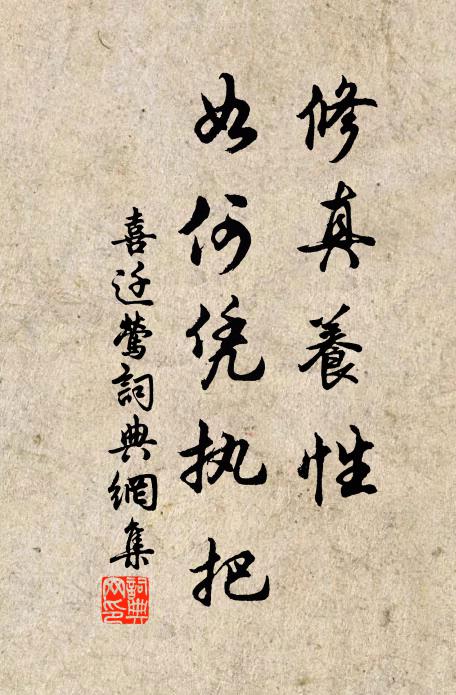 修真養性
如何凭执把
喜迁莺詞典網集
詞典
网印